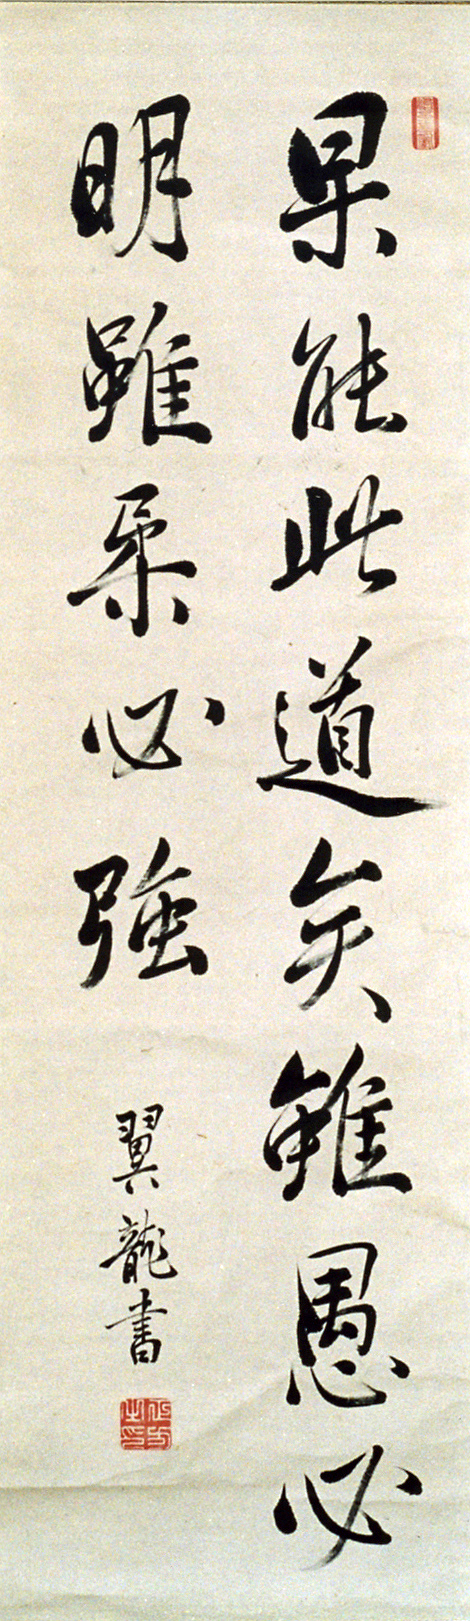 果能此道矣雖愚必
明雖柔必強
翼龍書